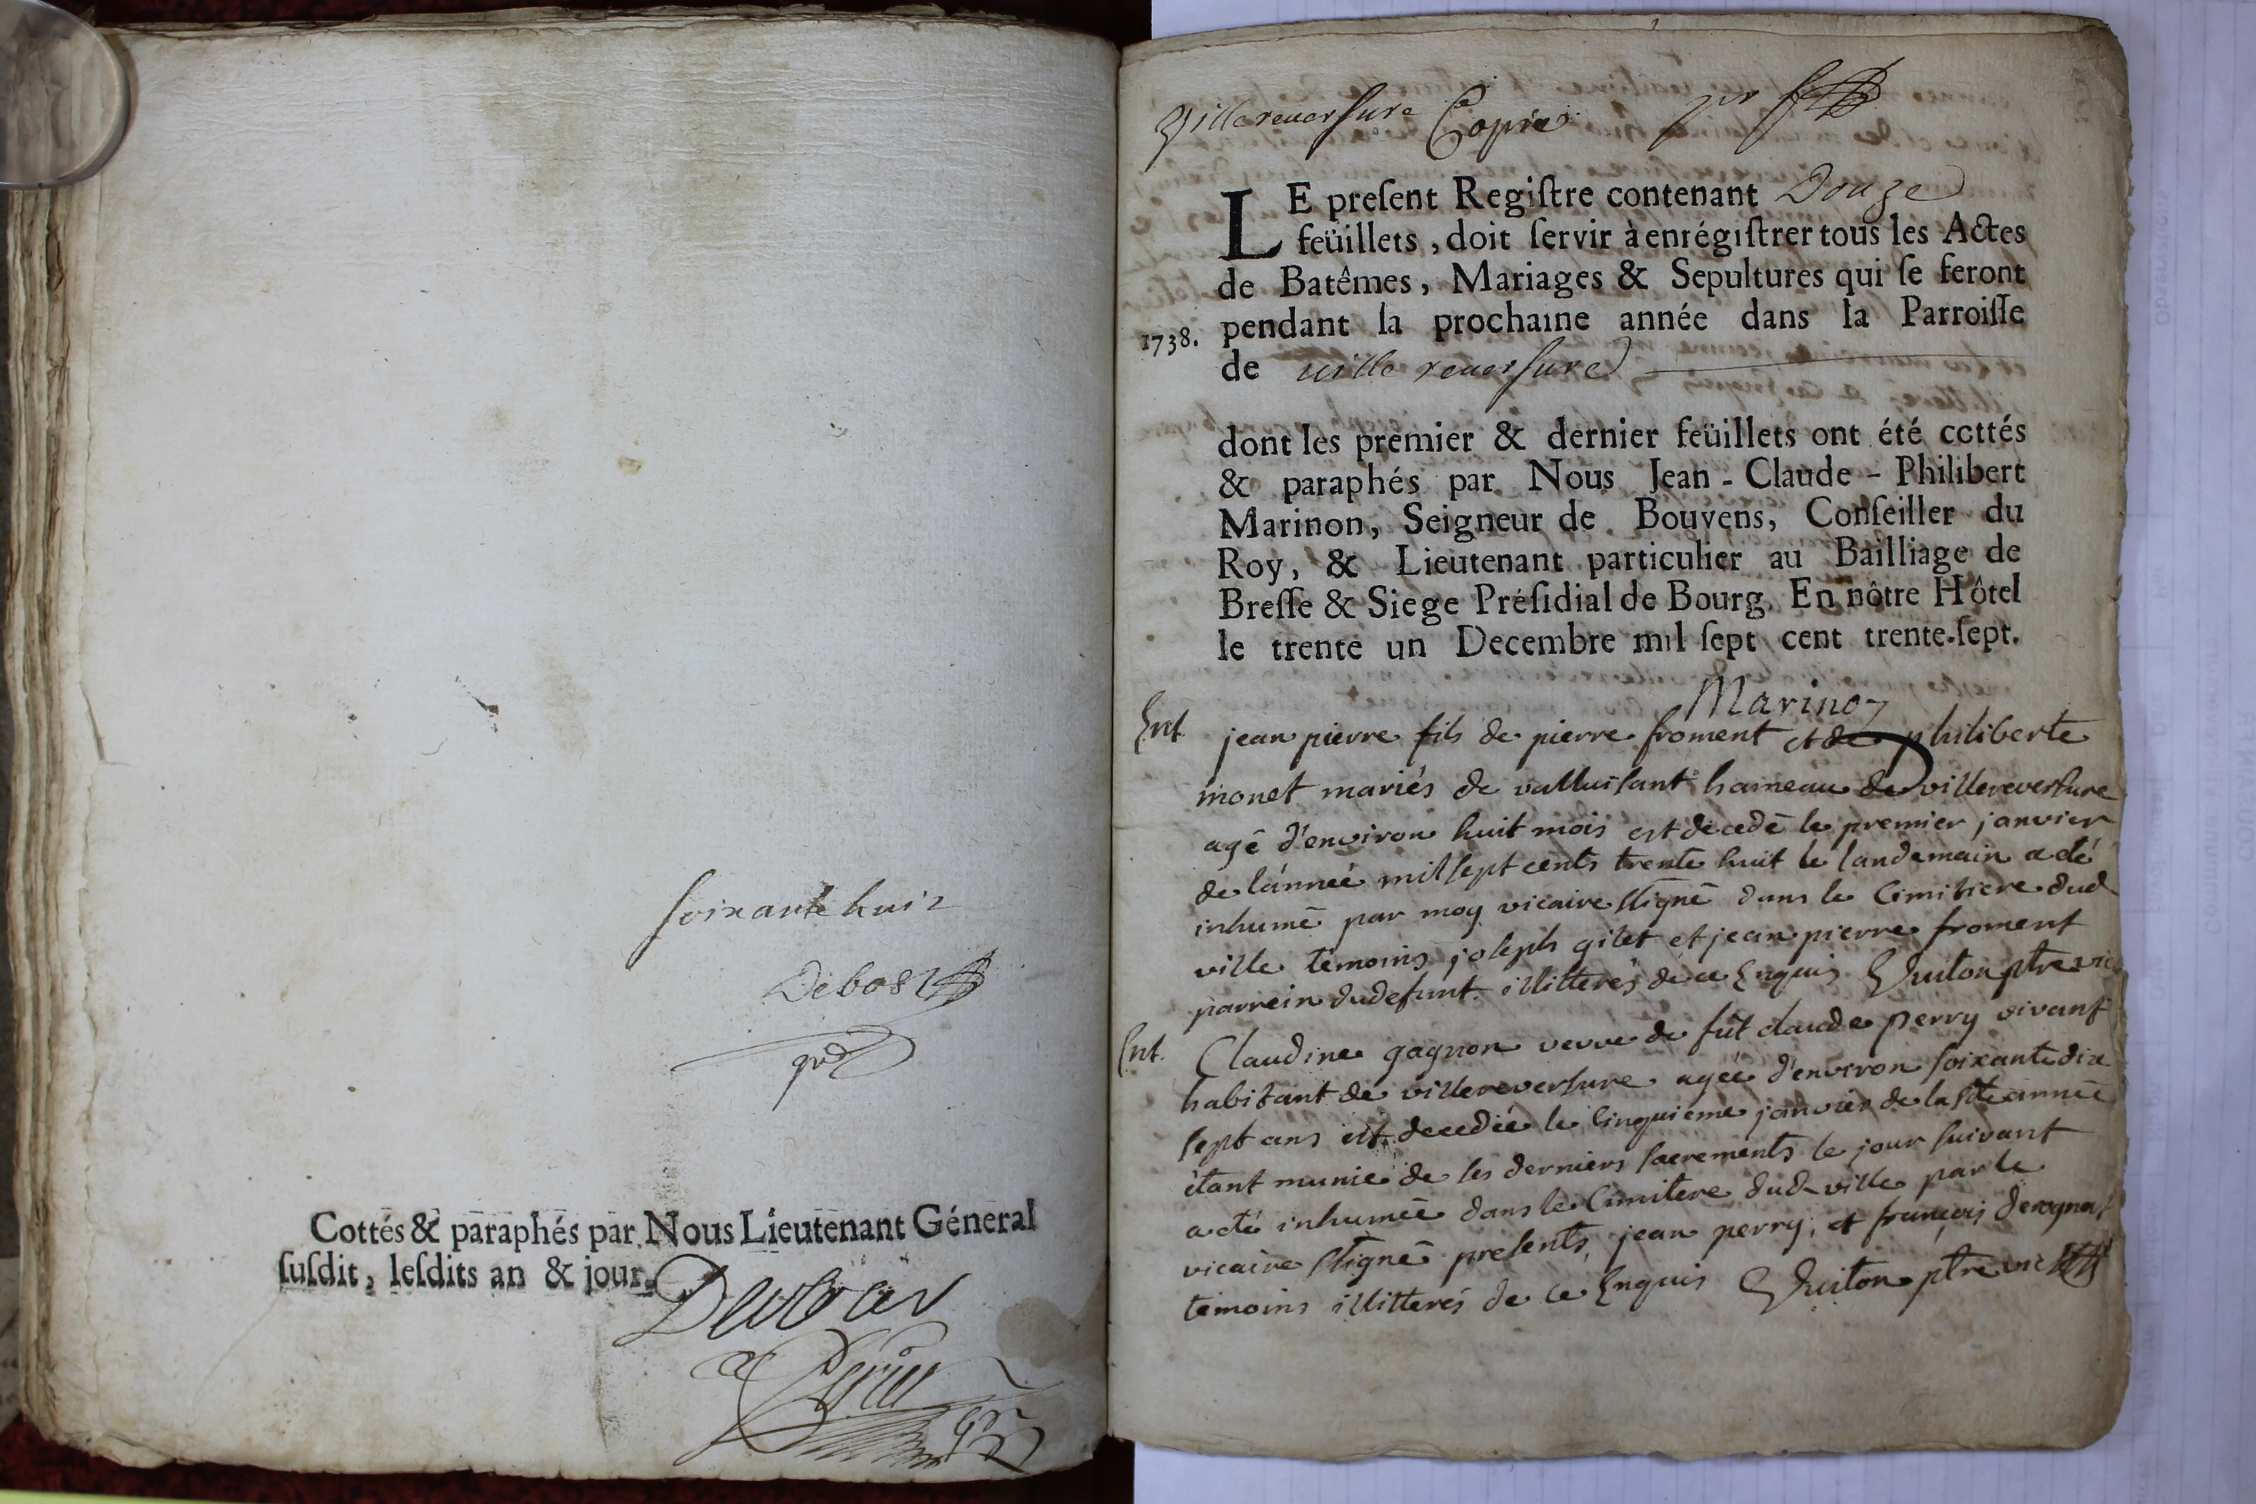 soixante huit
Debost
Cottés & paraphés par Nous Lieutenant Géneral
ſuſdit, leſdits an & jour.
Villereuersure Copie pr
LE preſent Regiſtre contenant Douze
feüillets, doit ſervir à enrégiſtrer tous les Actes
de Batêmes, Mariages & Sepultures qui ſe feront
1738. pendant la prochaine année dans la Parroiſſe
de uille reuersure
dont les premier & dernier feüillets ont été cottés
& paraphés par Nous Jean-Claude-Philibert
Marinon, Seigneur de Bouvens, Conſeiller du
Roy, & Lieutenant particulier au Bailliage de
Breſſe & Siege Préſidial de Bourg. En nôtre Hôtel
le trente un Decembre mil ſept cent trente-ſept.
Marinon
Ent. jean pierre fils de pierre froment et de philiberte
monet mariés de valluisant hameau de villereversure
agé d'environ huit mois est decedé le premier janvier
de l'année mil sept cents trente huit le landemain a eté
inhumé par moy vicaire ssigné dans le Cimitiere dud
ville temoins joseph gilet et jean pierre froment
parrein du defunt illitterés de ce Enquis Guiton ptre vic
Ent. Claudine gagnon veuve de fut claude perry vivant
habitant de villereversure agée d'environ soixante dix
sept ans est decedée le Cinquieme janvier de la ste année
étant munie de ses derniers sacrements le jour suivant
a eté inhumée dans le Cimitere dud ville par le
vicaire ssigné presents jean perry, et françois derognat
temoins illitterés de ce Enquis Guiton ptre vic